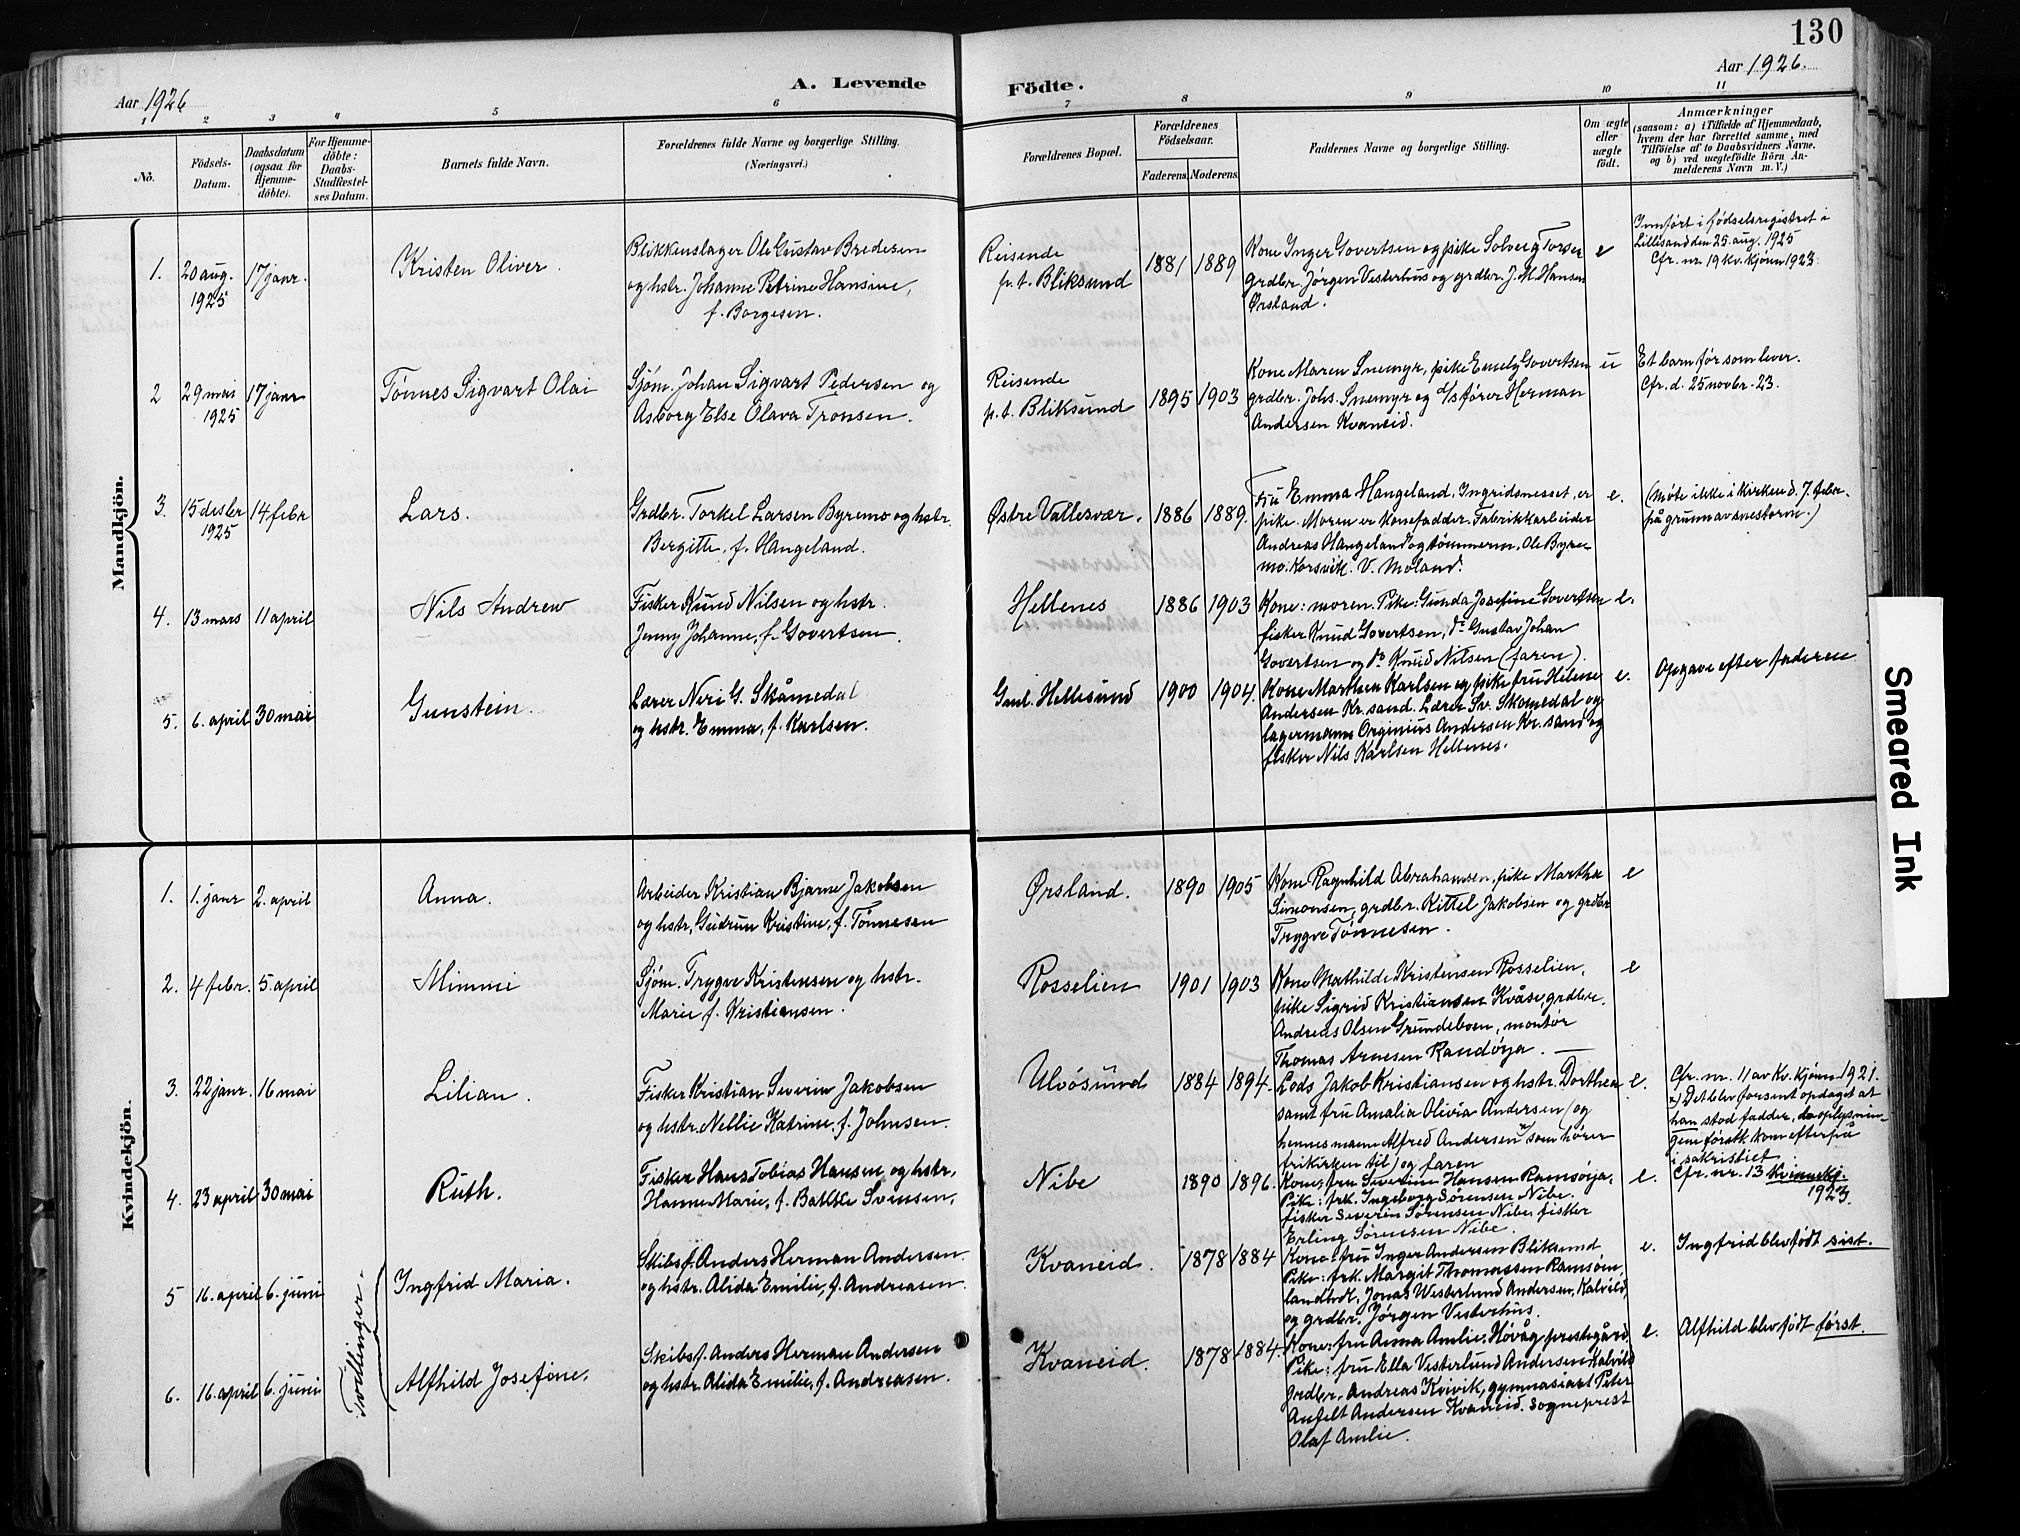 130
Aar 1926
A. Levende
Födte.
Aar 1926.
1 2 3 4 5 6 7 8 9 10 11
No.
Födsels-
Datum.
Daabsdatum
(ogsaa for
Hjemme-
döbte).
For Hjemme-
döbte:
Daabs-
Stadfæstel-
ses Datum.
Barnets fulde Navn.
Forældrenes fulde Navne og borgerlige Stilling.
(Næringsvei.)
Forældrenes Bopæl.
Forældrenes
Födselsaar.
Faderens.
Moderens.
Faddernes Navne og borgerlige Stilling.
Om ægte
eller
uægte
födt.
Anmærkninger
(saasom: a) i Tilfælde af Hjemmedaab,
hvem der har forrettet samme, med
Tilföielse af to Daabsvidners Navne,
og b) ved uægtefödte Börn An-
melderens Navn m. V.)
Mandkjön.
1.
20 aug.
1925
17 janr.
Kristen Oliver.
Blikkenslager Ole Gustav Bredesen
og hstr. Johanne Petrine Hansine,
f. Borgesen.
Reisende
p. t. Bliksund
1881
1889
Kone Inger Govertsen og pike Solveig Torsen
grdbr. Jørgen Vesterhus og grdbr. J. M. Hansen
Ørsland.
e
Innført i fødselsregistret i
Lillisand den 25 aug. 1925
Cfr. nr. 19 kv. kjønn 1923.
2
29 mai
1925
17 janr
Tønnes Sigvart Olai
Sjøm. Johan Sigvart Pedersen og
Asborg Else Olava Tronsen.
Reisende
p. t. Bliksund
1895
1903
Kone Maren Snemyr, pike Emely Govertsen
grdbr. Johs. Snemyr og s/s fører Herman
Andersen Kvaneid.
u
Et barn før som lever.
Cfr. d. 25 novbr. 23.
3.
15 desbr
1925
14 febr
Lars.
Grdbr. Torkel Larsen Byremo og hstr.
Bergitte, f. Hangeland.
Østre Vallesvær.
1886
1889.
Fru Emma Hangeland, Ingridsnesset, er
pike. Moren er konefadder. Fabrikkarbeider
Andreas Hangeland og tømmerm. Ole Byre-
mo. Korsvik. V. Moland.
e.
(Møte ikke i kirken d. 7. febr.
på grunn av snestorm.)
4.
13 mars
11 april
Nils Andrew
Fisker Knud Nilsen og hstr.
Jenny Johanne, f. Govertsen.
Hellenes
1886
1903
Kone: moren. Pike: Gunda Josefine Govertsen
fisker Knud Govertsen, do Gustav Johan
Govertsen og do Knud Nilsen (faren).
e.
5.
6. april
30 mai
Gunstein.
Lærer Neri G. Skåmedal
og hstr. Emma, f. Karlsen.
Gml. Hellesund
1900
1904.
Kone Marthea Karlsen og pike fru Helene
Andersen Kr. sand. Lærer Sv. Skomedal og
lagermann Orginius Andersen Kr. sand og
fisker Nils Karlsen Hellenes.
e.
Opgave efter faderen
Kvindekjön.
1.
1. janr
2. april
Anna.
Arbeider Kristian Bjarne Jakobsen
og hstr. Gudrun Kristine, f. Tønnesen
Ørsland.
1890
1905
Kone Ragnhild Abrahamsen, pike Martha
Simonsen, grdbr. Kittel Jakobsen og grdbr
Trygve Tønnesen.
e
2.
4 febr.
5. april
Mimmi
Sjøm. Trygve Kristensen og hstr.
Marie f. Kristiansen.
Rosselien
1901
1903
Kone Mathilde Kristensen Rosselien,
pike Sigrid Kristiansen Kvåse, grdbre.
Andreas Olsen Grundeboen, montør
Thomas Arnesen Randøya.
e
3.
22 janr.
16 mai
Lilian.
Fisker Kristian Severin Jakobsen
og hstr. Nellie Katrine, f. Johnsen.
Ulvøsund
1884
1894.
Lods Jakob Kristiansen og hstr. Dorthea
samt fru Amalia Olivia Andersen (og
hennes mann Alfred Andersen x) som hører
frikirken til) og faren
e.
Cfr. nr. 11 av kv. kjønn 1921.
x) Det blev forsent opdaget at
han stod fadder, da oplysnin-
gen først kom efterpå
i sakristiet.
4.
23 april
30 mai
Ruth.
Fisker Hans Tobias Hansen og hstr.
Hanne Marie, f. Svensen.
Nibe
1890
1896.
Kone: fru Severine Hansen Ramsøya.
Pike: frk. Ingeborg Sørensen Nibe.
fisker Severin Sørensen Nibe, fisker
Erling Sørensen Nibe.
e.
Cfr. nr. 13 kvinnekj.
1923
Tvillinger.
5
16. april
6. juni
Ingfrid Maria.
Skibsf. Anders Herman Andersen
og hstr. Alida Emilie, f. Andreasen.
Kvaneid.
1878
1884
Kone: fru Inger Andersen Bliksund
Pike: frk. Margit Thomassen Ramsøen,
landhdl. Jonas Westerlund Andersen, Kalvild
og grdbr. Jørgen Vesterhus.
e.
Ingfrid blev født sist.
6.
16. april
6. juni
Alfhild Josefine.
Skibsf. Anders Herman Andersen
og hstr. Alida Emilie, f. Andreasen.
Kvaneid.
1878
1884.
Kone: fru Anna Amlie, Høvåg prestegård,
Pike: fru Ella Vesterlund Andersen Kalvild
Grdbr. Andreas Kvivik, gymnasiast Peter
Anfelt Andersen Kvaneid. Sogneprest
Olaf Amlie.
e.
Alfhild blev født først.
Smeared Ink